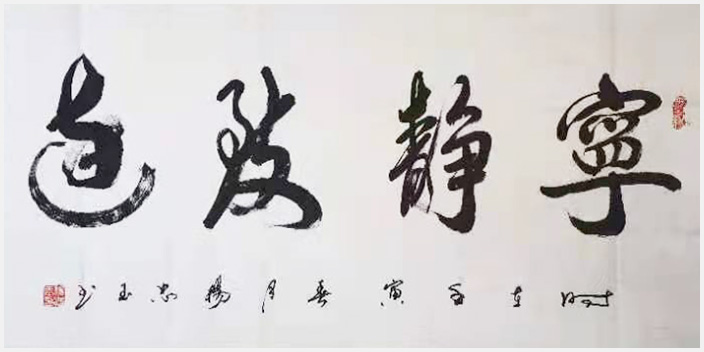 寧靜致遠
时在壬寅春月楊忠玉书